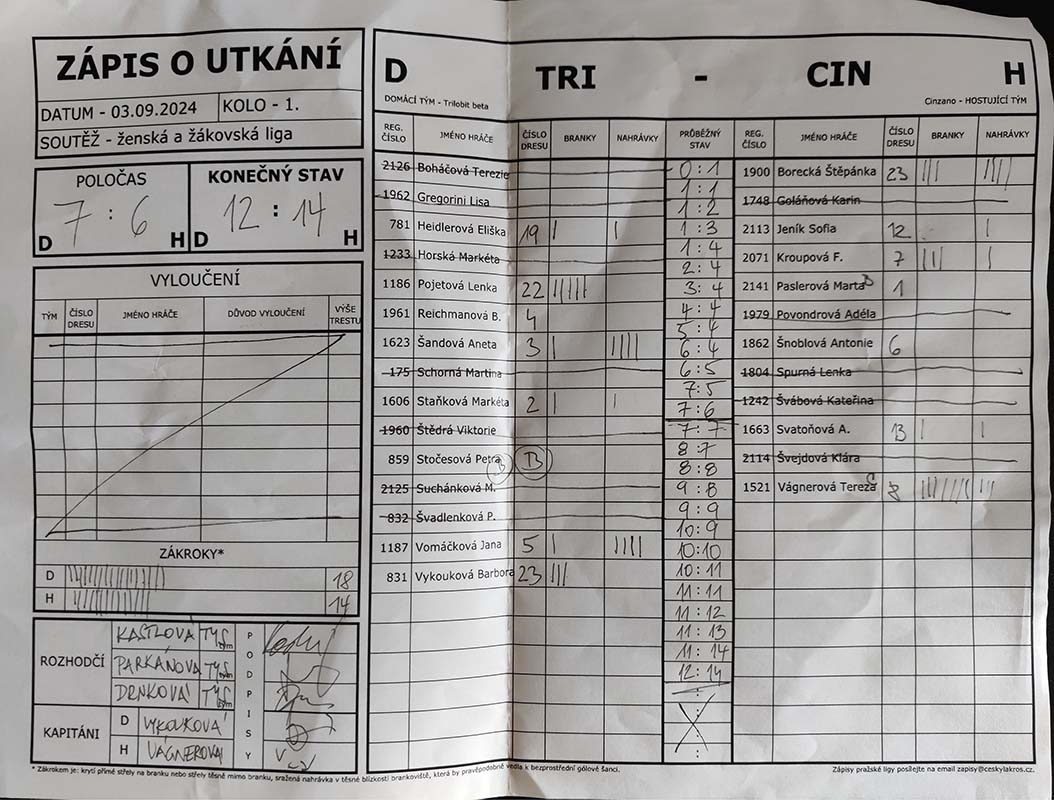 ZÁPIS O UTKÁNÍ
DATUM - 03.09.2024 KOLO - 1.
SOUTĚŽ - ženská a žákovská liga
POLOČAS KONEČNÝ STAV
7 : 6 12 : 14
D H D H
VYLOUČENÍ
TÝM ČÍSLO DRESU JMÉNO HRÁČE DŮVOD VYLOUČENÍ VÝŠE TRESTU
ZÁKROKY*
D 18
H 14
ROZHODČÍ
KASTLOVÁ
PARKÁNOVÁ
DRNKOVÁ
PODPISY
KAPITÁNI
D VYKOUKOVÁ
H VÁGNEROVÁ
D TRI - CIN H
DOMÁCÍ TÝM - Trilobit beta Cinzano - HOSTUJÍCÍ TÝM
REG. ČÍSLO JMÉNO HRÁČE ČÍSLO DRESU BRANKY NAHRÁVKY PRŮBĚŽNÝ STAV REG. ČÍSLO JMÉNO HRÁČE ČÍSLO DRESU BRANKY NAHRÁVKY
2126 Boháčová Terezie
1962 Gregorini Lisa
781 Heidlerová Eliška 19 | |
1233 Horská Markéta
1186 Pojetová Lenka 22 |||||
1961 Reichmanová B. 4
1623 Šandová Aneta 3 | ||||
175 Schorná Martina
1606 Staňková Markéta 2 | |
1960 Štědrá Viktorie
859 Stočesová Petra B B
2125 Suchánková M.
832 Švadlenková P.
1187 Vomáčková Jana 5 | ||||
831 Vykouková Barbora 23 |||
0:1
1:1
1:2
1:3
1:4
2:4
3:4
4:4
5:4
6:4
6:5
7:5
7:6
7:7
8:7
8:8
9:8
9:9
10:9
10:10
10:11
11:11
11:12
11:13
11:14
12:14
1900 Borecká Štěpánka 23 ||| ||||
1748 Goláňová Karin
2113 Jeník Sofia 12 |
2071 Kroupová F. 7 ||| |
2141 Paslerová Marta B 1
1979 Povondrová Adéla
1862 Šnoblová Antonie 6
1804 Spurná Lenka
1242 Švábová Kateřina
1663 Svatoňová A. 13 | |
2114 Švejdová Klára
1521 Vágnerová Tereza 8
* Zákrokem je: krytí přímé střely na branku nebo střely těsně mimo branku, sražená nahrávka v těsné blízkosti brankoviště, která by pravěpodobně vedla k bezprostřední gólové šanci.
Zápisy pražské ligy posílejte na email zapisy@ceskylakros.cz.